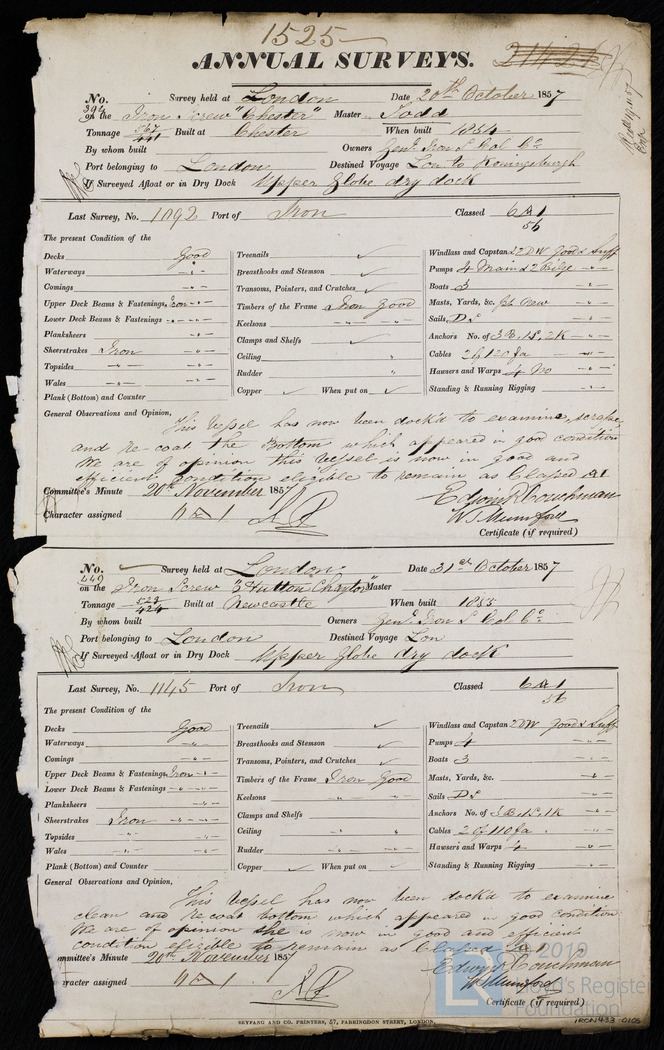 1525
ANNUAL SURVEYS.
No. 394 Survey held at London Date 20th October 1857
on the Iron Screw "Chester" Master Todd
Tonnage 567/441 Built at Chester When built 1854
By whom built Owners Genl. Iron S. Col. Co.
Port belonging to London Destined Voyage Lon to Koningsburgh
If Surveyed Afloat or in Dry Dock Upper Globe dry dock
Last Survey, No. 1092 Port of Iron Classed 6 A 1
56
The present Condition of the
Decks Good
Waterways " -
Comings " -
Upper Deck Beams & Fastenings, Iron " -
Lower Deck Beams & Fastenings - " -
Planksheers - " -
Sheerstrakes Iron - " -
Topsides - " - - " -
Wales - " - - " -
Plank (Bottom) and Counter
Treenails ✓
Breasthooks and Stemson ✓
Transoms, Pointers, and Crutches ✓
Timbers of the Frame Iron Good
Keelsons - " - " -
Clamps and Shelfs ✓ "
Ceiling "
Rudder "
Copper ✓ When put on ✓
Windlass and Capstan 2 DW Good & Suff
Pumps 4 Main & 2 Bilge - " -
Boats 3 - " -
Masts, Yards, &c. - " -
Sails D S - " -
Anchors No. of 3 B, 1 S, 2 K - " -
Cables 2 of 120 fa - " -
Hawsers and Warps 4 No - " -
Standing & Running Rigging - " -
General Observations and Opinion,
This Vessel has now been dock'd to examine, scrape,
and re-coat the Bottom which appeared in good condition
We are of opinion this Vessel is now in good and
efficient condition eligible to remain as Classed A1
Committee's Minute 20th November 1857 Edwin R Couchman
Character assigned 6 A 1 W. T. Mumford
Certificate (if required)
No. 449 Survey held at London Date 31st October 1857
on the Iron Screw "E Hutton Chaytor" Master
Tonnage 523/424 Built at Newcastle When built 1853
By whom built Owners Genl. Iron S. Col. Co.
Port belonging to London Destined Voyage Lon
If Surveyed Afloat or in Dry Dock Upper Globe dry dock
Last Survey, No. 1145 Port of Iron Classed 6 A 1
56
The present Condition of the
Decks Good
Waterways - " -
Comings - " -
Upper Deck Beams & Fastenings, Iron - " -
Lower Deck Beams & Fastenings - " -
Planksheers - " -
Sheerstrakes Iron - " -
Topsides - " - - " -
Wales - " - - " -
Plank (Bottom) and Counter
Treenails ✓
Breasthooks and Stemson ✓
Transoms, Pointers, and Crutches ✓
Timbers of the Frame Iron Good
Keelsons - " - - " -
Clamps and Shelfs
Ceiling " "
Rudder - " - - " -
Copper ✓ When put on ✓
Windlass and Capstan 2 DW Good & Suff
Pumps 4 - " -
Boats 3 - " -
Masts, Yards, &c. - " -
Sails D S - " -
Anchors No. of 3 B, 1 S, 1 K - " -
Cables 2 of 110 fa - " -
Hawsers and Warps 4 - " -
Standing & Running Rigging - " -
General Observations and Opinion,
This Vessel has now been dock'd to examine
clean and re-coat bottom which appeared in good condition
We are of opinion she is now in good and efficient
condition eligible to remain as Classed 6 A 1
ommittee's Minute 20th November 1857 Edwin R Couchman
aracter assigned 6 A 1 W. T. Mumford
Certificate (if required)
SEYFANG AND CO. PRINTERS, 57, FARRINGDON STREET, LONDON.
© 2019
Lloyd's Register
Foundation
IRON433-0105